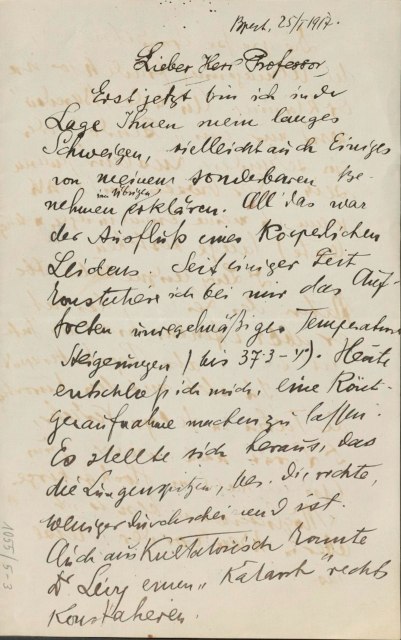 Bpest, 25/I 1917.
Lieber Herr Professor,
Erst jetzt bin ich in der
Lage Ihnen mein langes
Schweigen, vielleicht auch Einiges
von meinem sonderbaren Be-
im Übrigen
nehmen erklären. All das war
der Ausfluß eines Koerperlichen
Leidens. Seit einiger Zeit
konstatiere ich bei mir das Auf-
treten unregelmäßiger Temperatur
Steigerungen (bis 37·3-4°). Heute
entschloß ich mich, eine Rönt-
genaufnahme machen zu lassen.
Es stellte sich heraus, das
die Lungenspitzen, bes. die rechte,
weniger durchscheinend ist.
Auch auskultatorisch konnte
Dr Lévy einen „Katarrh" rechts
Konstatieren.
1055/5-3